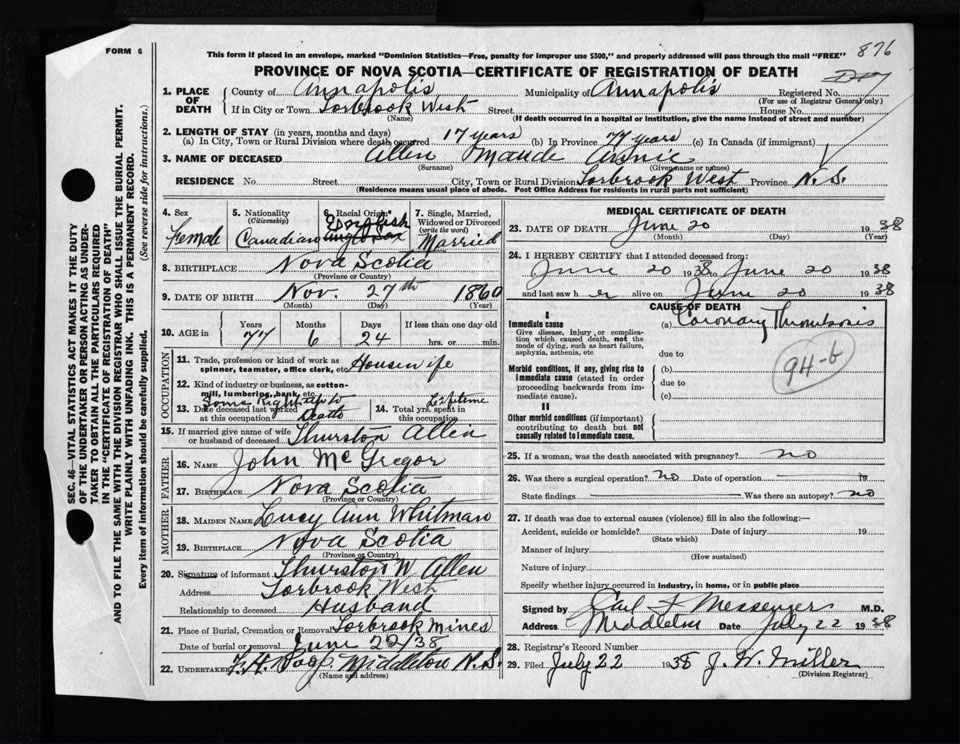 FORM 6
This form if placed in an envelope, marked "Dominion Statistics—Free, penalty for improper use $300," and properly addressed will pass through the mail "FREE"
876
PROVINCE OF NOVA SCOTIA—CERTIFICATE OF REGISTRATION OF DEATH
1. PLACE OF DEATH
County of Annapolis Municipality of Annapolis Registered No.
(For use of Registrar General only)
If in City or Town Torbrook West Street House No.
(Name) (If death occurred in a hospital or institution, give the name instead of street and number)
2. LENGTH OF STAY (in years, months and days)
(a) In City, Town or Rural Division where death occurred 17 years (b) In Province 77 years (c) In Canada (if immigrant)
3. NAME OF DECEASED Allen Maude Annie
(Surname) (Given name or names)
RESIDENCE No. Street City, Town or Rural Division Torbrook West Province N.S.
(Residence means usual place of abode. Post Office Address for residents in rural parts not sufficient)
SEC. 46—VITAL STATISTICS ACT MAKES IT THE DUTY
OF THE UNDERTAKER OR PERSON ACTING AS UNDER-
TAKER TO OBTAIN ALL THE PARTICULARS REQUIRED
IN THE "CERTIFICATE OF REGISTRATION OF DEATH"
AND TO FILE THE SAME WITH THE DIVISION REGISTRAR WHO SHALL ISSUE THE BURIAL PERMIT.
WRITE PLAINLY WITH UNFADING INK. THIS IS A PERMANENT RECORD.
Every item of information should be carefully supplied. (See reverse side for instructions.)
4. Sex
Female
5. Nationality
(Citizenship)
Canadian
6. Racial Origin
Anglo Sax
7. Single, Married, Widowed or Divorced
(write the word)
Married
8. BIRTHPLACE Nova Scotia
(Province or Country)
9. DATE OF BIRTH Nov. 27th 1860
(Month) (Day) (Year)
10. AGE in Years Months Days If less than one day old
77 6 24 hrs. or min.
OCCUPATION
11. Trade, profession or kind of work as
spinner, teamster, office clerk, etc. Housewife
12. Kind of industry or business, as cotton-
mill, lumbering, bank, etc.
13. Date deceased last worked
at this occupation Some Right up to Death
14. Total yrs. spent in
this occupation Lifetime
15. If married give name of wife
or husband of deceased Thurston Allen
FATHER
16. NAME John McGregor
17. BIRTHPLACE Nova Scotia
(Province or Country)
MOTHER
18. MAIDEN NAME Lucy Ann Whitman
19. BIRTHPLACE Nova Scotia
(Province or Country)
20. Signature of informant Thurston W Allen
Address Torbrook West
Relationship to deceased Husband
21. Place of Burial, Cremation or Removal Torbrook Mines
Date of burial or removal June 22/38
22. UNDERTAKER Middleton N.S.
(Name and address)
MEDICAL CERTIFICATE OF DEATH
23. DATE OF DEATH June 20 1938
(Month) (Day) (Year)
24. I HEREBY CERTIFY that I attended deceased from:
June 20 1938 to June 20 1938
and last saw her alive on June 20 1938
CAUSE OF DEATH
I
Immediate cause (a) Coronary Thrombosis
Give disease, injury or complica-
tion which caused death, not the
mode of dying, such as heart failure,
asphyxia, asthenia, etc due to
94-b
Morbid conditions, if any, giving rise to
immediate cause (stated in order
proceeding backwards from im-
mediate cause).
(b)
due to
(c)
II
Other morbid conditions (if important)
contributing to death but not
causally related to immediate cause.
25. If a woman, was the death associated with pregnancy? no
26. Was there a surgical operation? no Date of operation 19
State findings Was there an autopsy? no
27. If death was due to external causes (violence) fill in also the following:—
Accident, suicide or homicide? Date of injury 19
(State which)
Manner of injury
(How sustained)
Nature of injury
Specify whether injury occurred in industry, in home, or in public place
Signed by Carl F Messenger M.D.
Address Middleton Date July 22 1938
28. Registrar's Record Number
29. Filed July 22 1938 J. W. Miller
(Division Registrar)